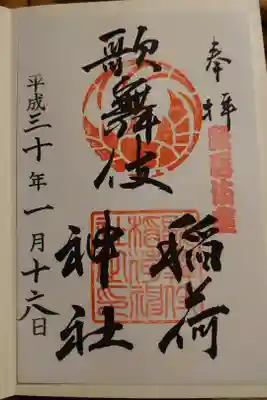 奉拝
歌舞伎
稲荷
神社
平成三十年一月十六日